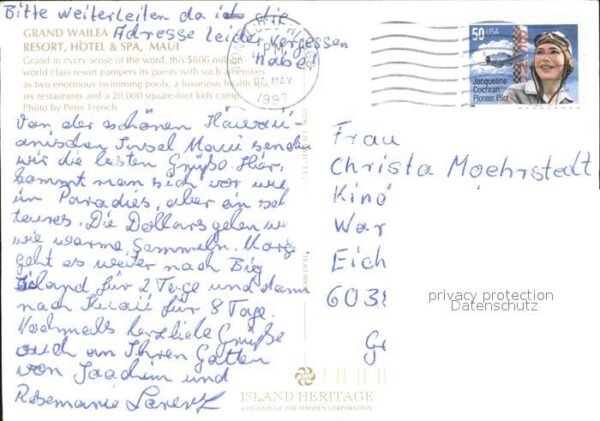 Bitte weiterleiten da ich die
Adresse leider vergessen
habe!
GRAND WAILEA
RESORT, HOTEL & SPA, MAUI
Grand in every sense of the word, this $600 million
world class resort pampers its guests with such amenities
as two enormous swimming pools, a luxurious health
six restaurants and a 20,000 square-foot kids camp.
Photo by Peter French
PM
MAY
1997
50 USA
Jacqueline
Cochran
Pioneer Pilot
Von der schönen Hawaii
anischen Insel Maui senden
wir die besten Grüße. Hier
kommt man sich vor wie
im Paradies, aber ein
teures. Die Dollars gehen
wie warme Semmeln. Morgen
geht es weiter nach Big
Island für 2 Tage und dann
nach Kauai für 8 Tage.
Nochmals herzliche Grüße
auch an Ihren Gatten
von Joachim und
Rosemarie Lorenz
Frau
Christa Moehrstedt
Kind
War
Eich
6038
Ge
privacy protection
Datenschutz
ISLAND HERITAGE
A DIVISION OF THE MADDEN CORPORATION